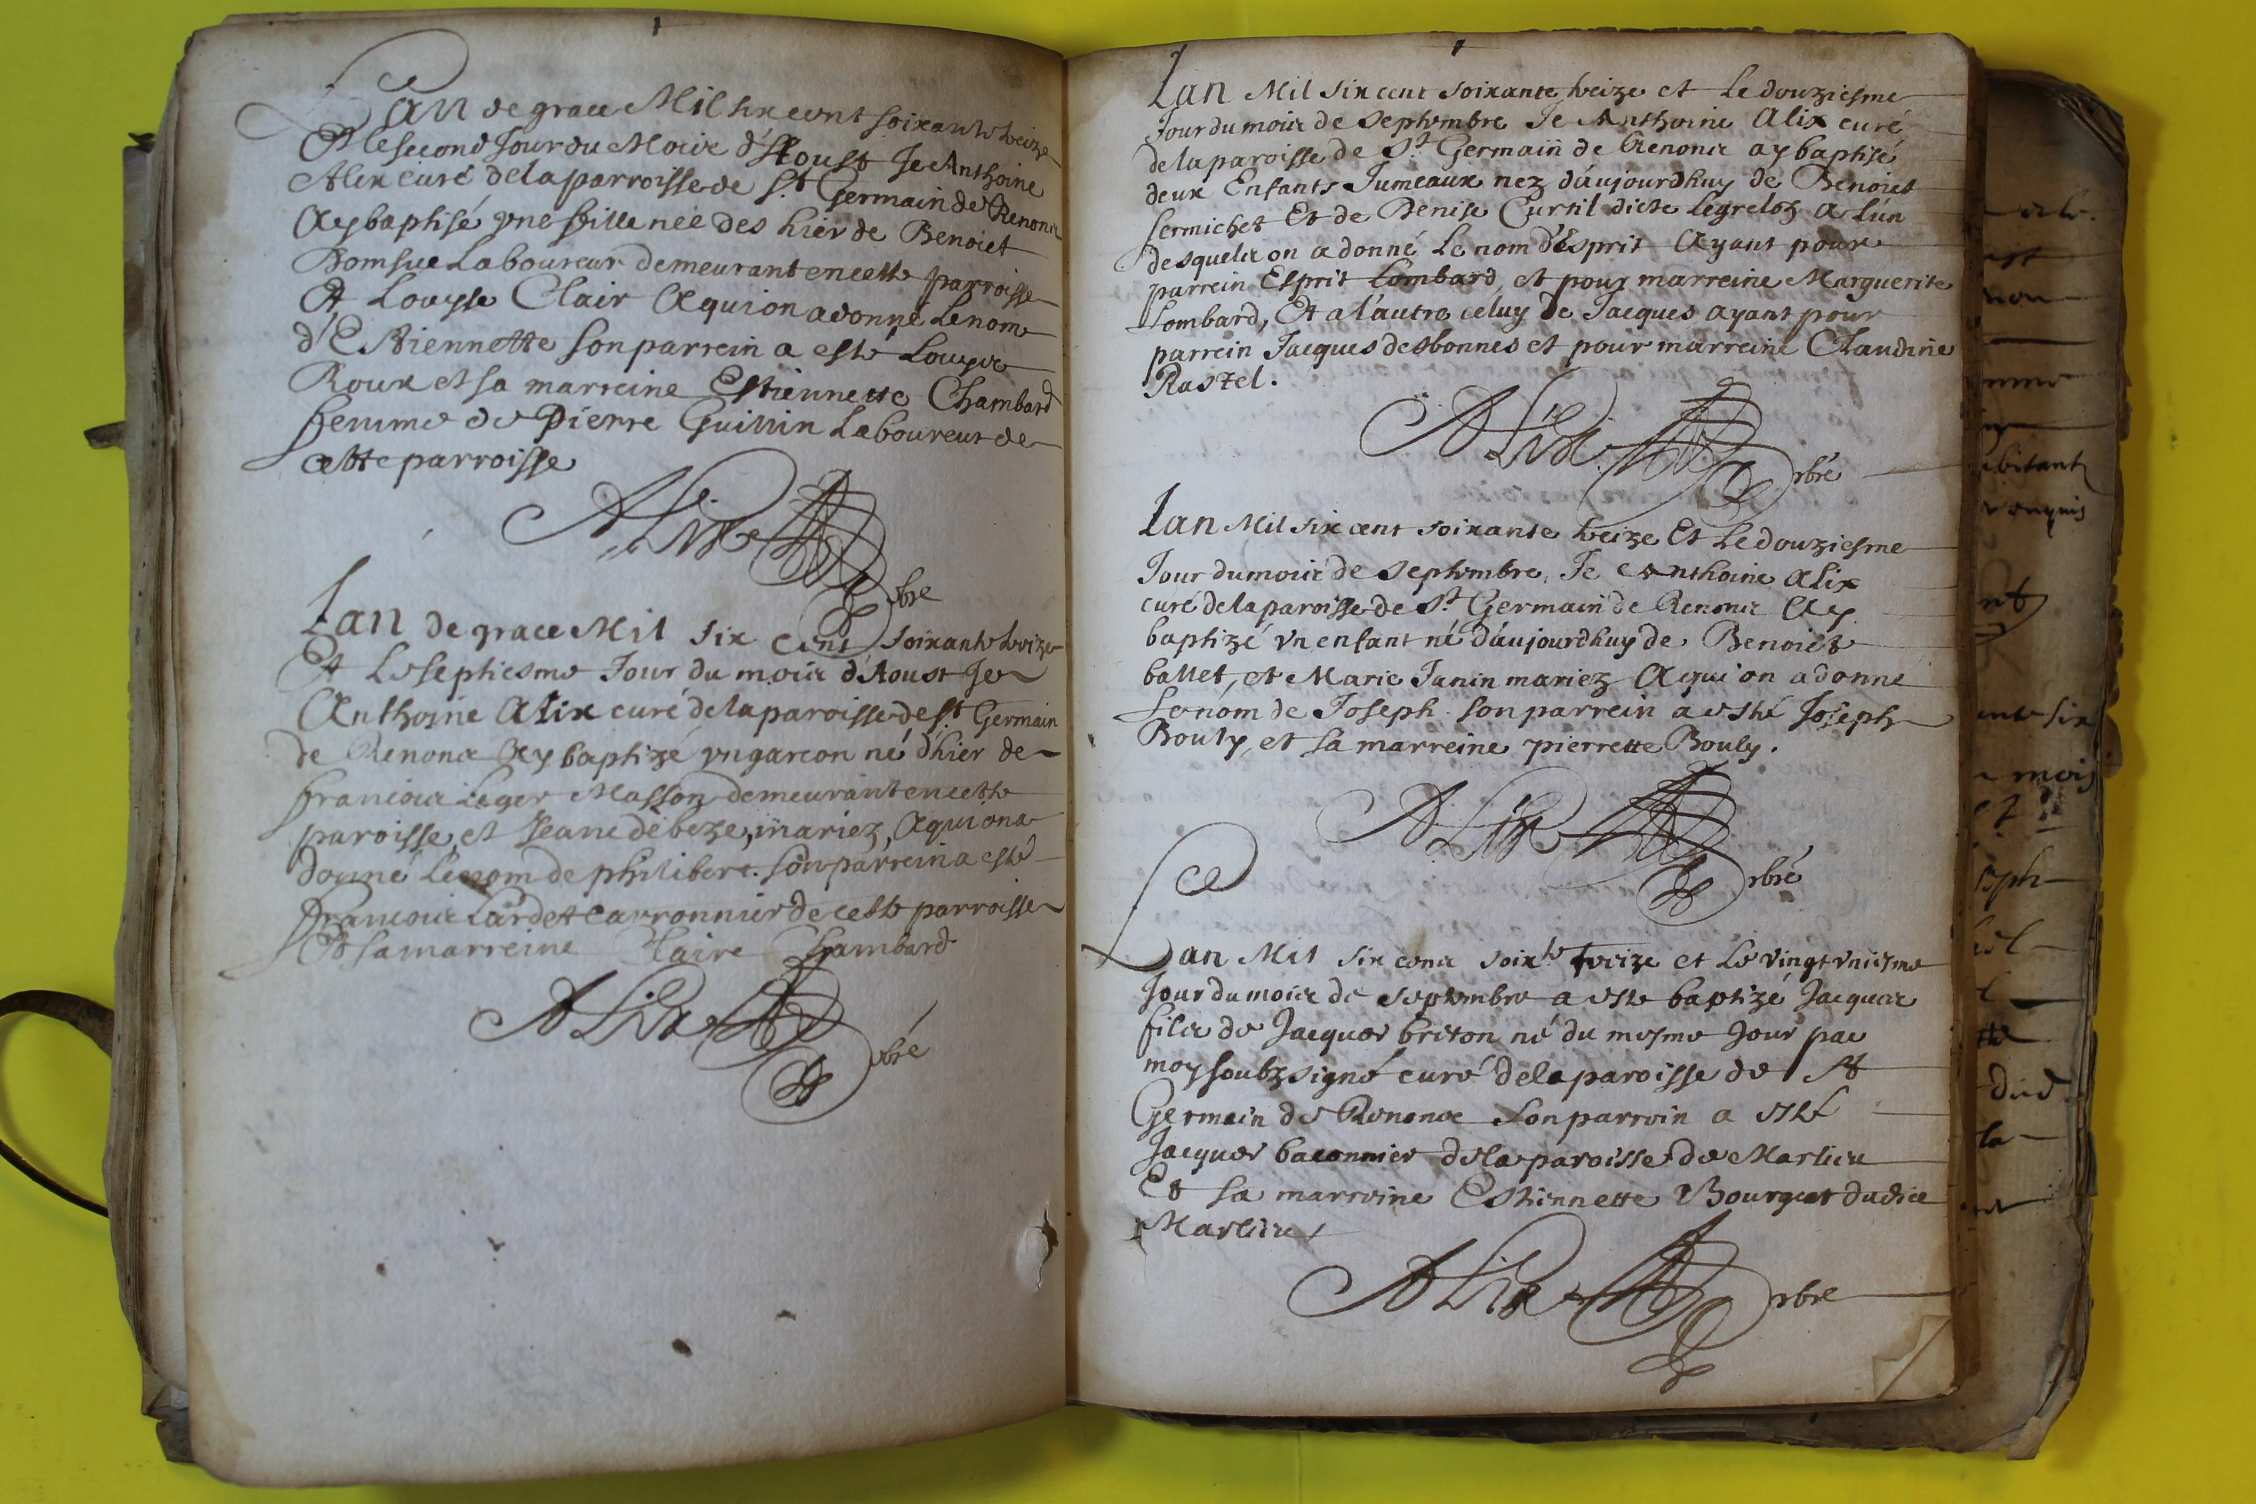 Lan de grace Mil six cent soixante treize
Et le second Jour du Mois d'Aoust Je Anthoine
Alix curé de la parroisse de St Germain de Renons
Ay baptisé vne fille neé des hier de Benoict
Laboureur demeurant en cette parroisse
Et Louyse Clair A qui on a donné Le nom
d'Estiennette son parrein a esté Louys
Roux et sa marreine Estiennette Chambard
femme de Pierre Guillin Laboureur de
cette parroisse
Alix
pbre
Lan de grace Mil six cent soixante treize
Et Le septiesme Jour du mois d'Aoust Je
Anthoine Alix curé de la paroisse de St Germain
de Renons Ay baptizé vn garcon né d'hier de
francois Leger Masson demeurant en cette
paroisse, et Jeane debeze, mariez, A qui on a
donné Le nom de philibert. son parrein a esté
francois Lardet carronnier de cette parroisse
Et sa marreine Claire Chambard
Alix
pbré
Lan Mil six cent soixante treize et Le douziesme
Jour du mois de Septembre Je Anthoine Alix curé
de la paroisse de St Germain de Renons ay baptisé
deux Enfants Jumeaux nez d'aujourdhuy de Benoict
fermichet Et de Denise Curtil dicte Legreloz A l'un
desquels on a donné Le nom d'Esprit Ayant pour
parrein Esprit Lombard, et pour marreine Marguerite
Lombard, Et a l'autre celuy de Jacques ayant pour
parrein Jacques desbonnes et pour marreine Claudine
Rastel.
Alix
pbré
Lan Mil six cent soixante treize Et Le douziesme
Jour du mois de Septembre, Je Anthoine Alix
curé de la paroisse de St Germain de Renons Ay
baptizé vn enfant né d'aujourdhuy de Benoict
ballet, et Marie Janin mariez A qui on a donne
Le nom de Joseph son parrein a esté Joseph
Bouly, et sa marreine pierrette Bouly.
Alix
pbré
Lan Mil six cens soixte treize et Le vingt vniesme
Jour du mois de Septembre a este baptizé Jacques
fils de Jacques briton né du mesme Jour par
moy soubzsigné curé de la paroisse de St
Germain de Renons son parrein a esté
Jacques baconnier de la paroisse de Marlieu
Et sa marreine Estiennette Bourgeat dudict
Marlieu
Alix
pbre